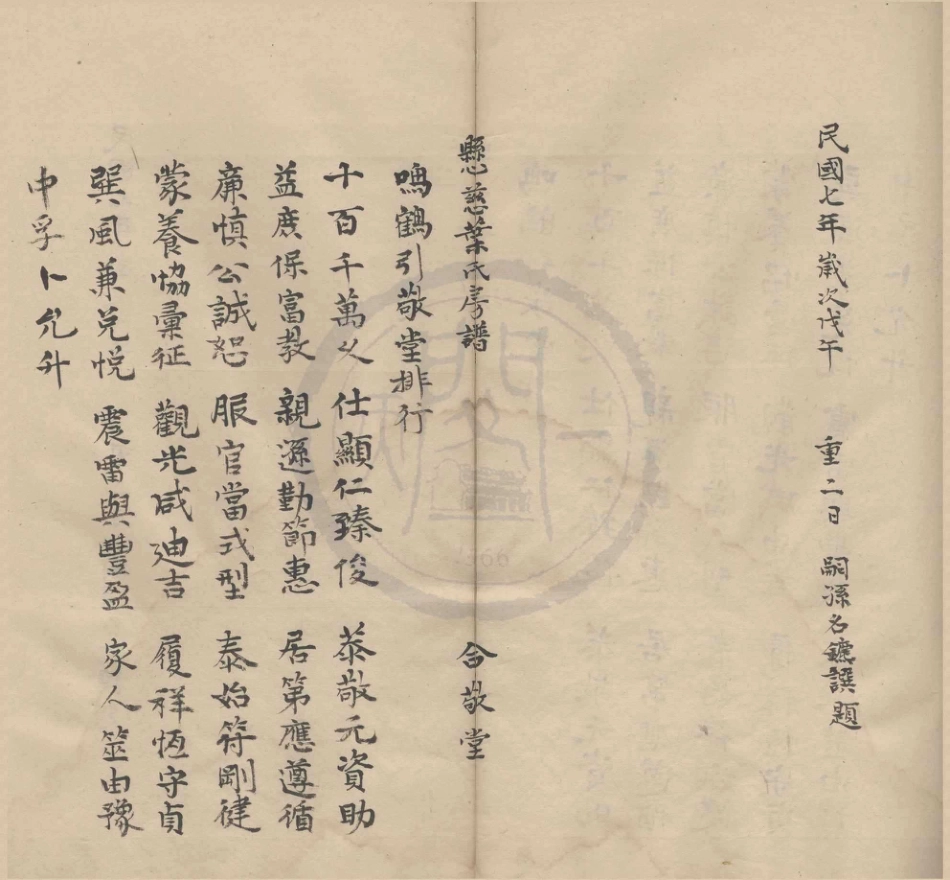 民國七年歲次戊午 重二日 嗣孫名鏕譔題
懸慈葉氏房譜 合敬堂
鳴鶴引敬堂排行
十百千萬乆 仕顯仁臻俊 恭敬元資助
益庶保富教 親遜勤節惠 居第應遵循
廉慎公誠恕 服官當式型 泰始符剛健
蒙養協彙征 觀光咸迪吉 履祥恆守貞
巽風兼兌悅 震雷與豐盈 家人筮由豫
中孚卜允升
1966